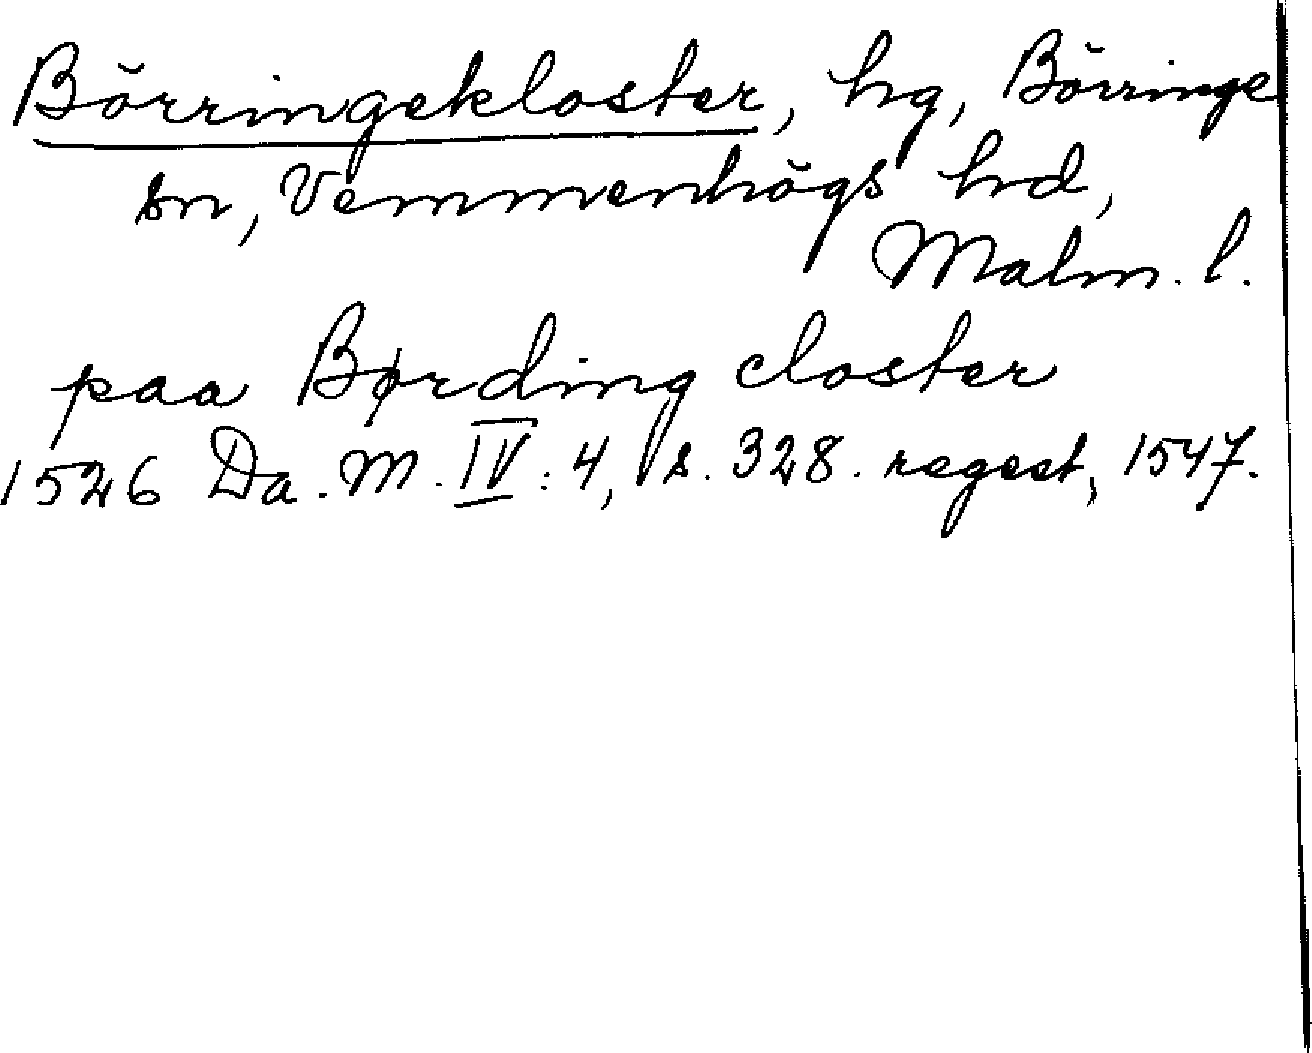 Börringekloster, hg, Börringe
sn, Vemmenhögs hrd,
Malm. l.
paa Børding closter
1526 Da. M. IV: 4, s. 328. regest, 1547.